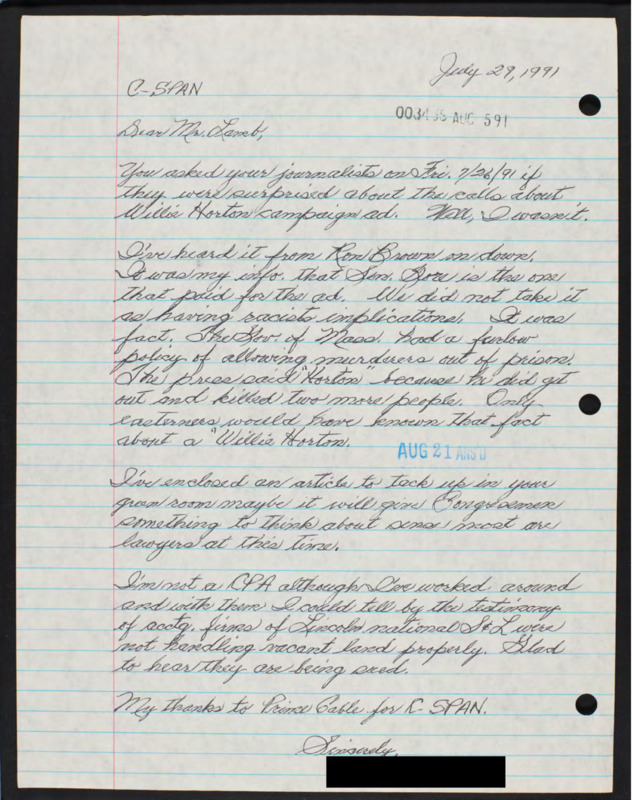 July 29, 1991
C-SPAN
003435 AUG 591
Dear Mr. Lamb,
You asked your journalists on Fri. 7/26/91 if
they were surprised about the calls about
Willie Horton campaign ad. Well, I wasn't.
I've heard it from Ron Brown on down.
It was my info. that Sen. Gore is the one
that paid for the ad. We did not take it
as having racists implications. It was
fact. The Gov. of Mass. had a furlow
policy of allowing murderers out of prison.
The press said "Horton" because he did get
out and killed two more people. Only
easterners would have known that fact
about a "Willie Horton.
AUG 21 ANS'D
I've enclosed an article to tack up in your
green room maybe it will give Congressmen
something to think about sense most are
lawyers at this time.
I'm not a CPA although I've worked around
and with them I could tell by the testimony
of acctg. firms of Lincoln national S&L were
not handling vacant land properly. Glad
to hear they are being sued.
My thanks to Prime Cable for C-SPAN.
Sincerely,